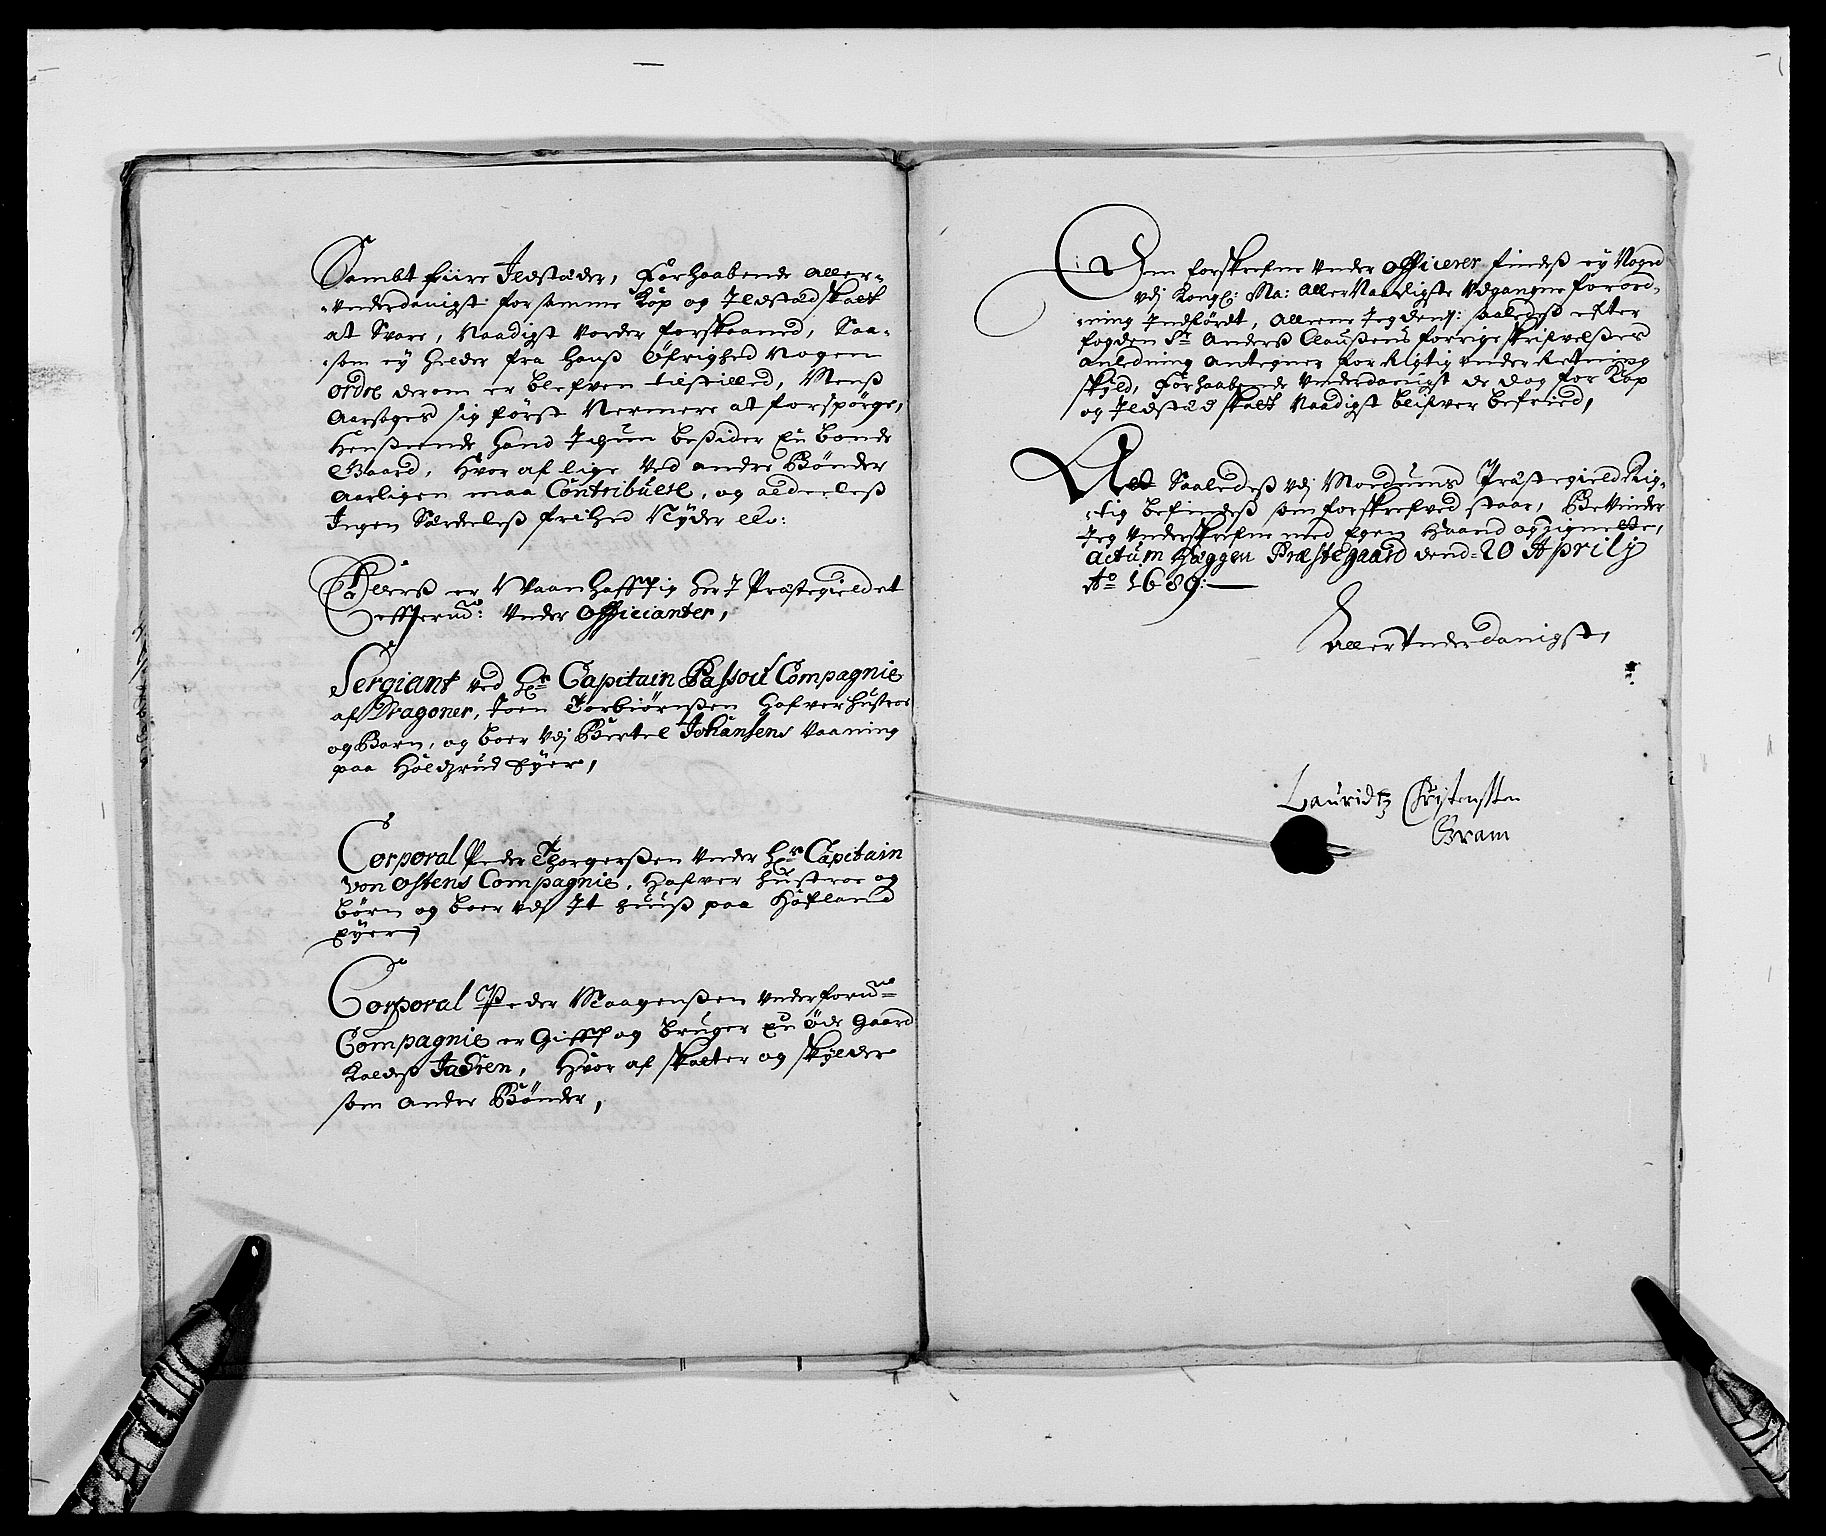 Sambt fiire Ildstæder, Forhaabende Aller-
-underdanigst for samme Kop og Ildstæd skatt
at Svare, Naadigst vorder forskaaned, Saa-
-som ey heller fra hans Øfrighed Nogen
ordre derom er blefven tilstilled, Menß
Aarsages sig først Nermere at forspørge,
Henseende hand Ichun besider En bonde
Gaard, Hvor af lige ved andre Bønder
Aarligen maa Contribuere, og alderleß
Ingen Særdeleß frihed Nyder etc:
Ellerß er Vaanhafftig her I Præstegieldet
effterne: Under Officianter,
Sergiant ved Hr Capitain Passou Compagnie
af Dragoner, Joen Torbiørnßen Hafver hustroe
og Barn, og boer udj Bertel Johansens Vaaning
paa Holdzrud Eyer,
Corporal Peder Thorgerßen under Hr Capitain
von Ostens Compagnie, Hafver hustroe og
børn og boer udj It huuß paa Hofland
Eyer,
Corporal Peder Maagenßen under forne
Compagnie er Gifft og bruger En øde Gaard
Kaldeß Hvor af skatter og skylder
som andre Bønder,
Om forskrefne Under Officerer findeß ey Noged
udj Kongl: Ma: Aller Naadigste Udgangne forord-
-ning Indførdt, Alleene Jeg dem: saaledß efter
fogden Sr Anderß Claußens forrige skrifvelßes
anledning antegner for Rigtig under Retning
skyld, Forhaabende Underdanigst de dog for Kop
og Ildstæd skatt Naadigst blifver befried,
Alt Saaledeß udj Modums Præstegield Rig-
-tig befindeß som forskrefved staar, Bevinder
Jeg Underskrefne med Egen Haand og Zignette,
Actum Heggen Præstegaard dend 20 Aprily
Ao 1689:
Aller Underdanigst,
Lauridtz Christenssen
Gram